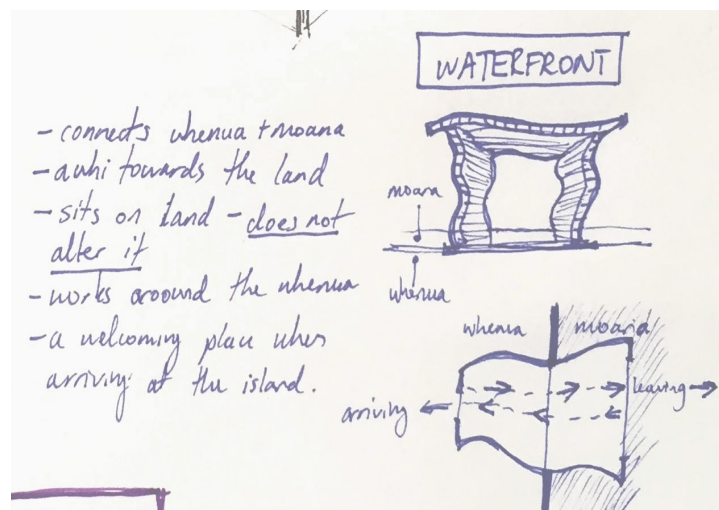 WATERFRONT
- connects whenua + moana
- awhi towards the land
- sits on land - does not
alter it
- works around the whenua
- a welcoming place when
arriving at the island.
moana
whenua
whenua
moana
leaving
arriving